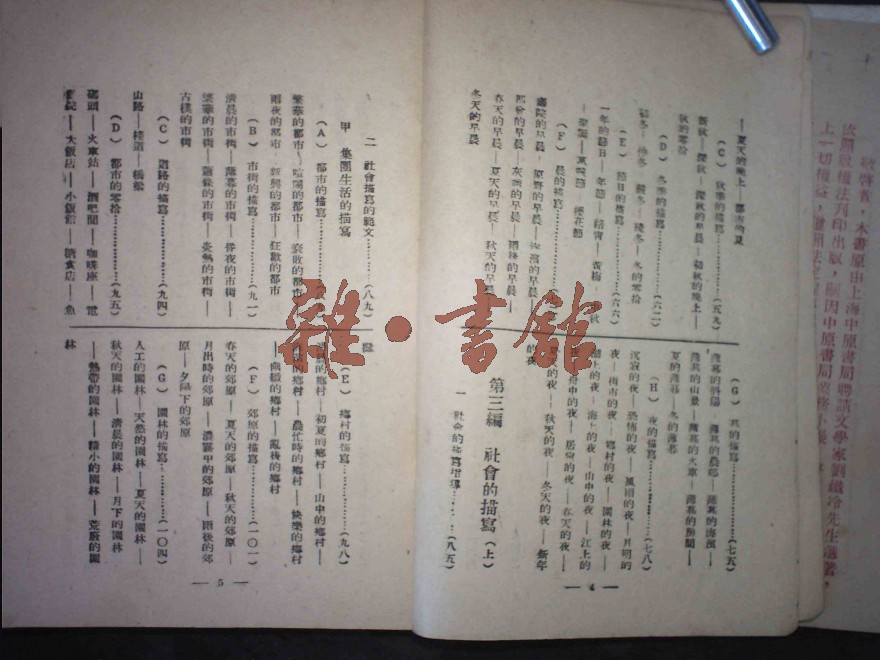 敬啓者，本書原由上海中原書局聘請文學家劉鐵冷先生選著，
依照版權法刋印出版，
上一切權益，
——夏天的晚上——都市的夏
（C）秋季的描寫…………（五九）
新秋——深秋——深秋的早晨——初秋的晚上——
秋的零拾
（D）冬季的描寫…………（六二）
初冬——冷冬——殘冬——冬的零拾
（E）節日的描寫…………（六六）
一年的節日——年節——清宵——黃梅——秋
（F）晨的描寫…………
原野的早晨——海濱的早晨——
都會的早晨——灰色的早晨——雨後的早晨——
春天的早晨——夏天的早晨——秋天的早晨——
冬天的早晨
（G）暮的描寫…………（七五）
薄暮的斜陽——薄暮的農郊——薄暮的海濱——
薄暮的山景——薄暮的火車——薄暮的房間——
夏的薄暮——冬的薄暮
（H）夜的描寫…………（七八）
沉寂的夜——恐怖的夜——風雨的夜——月明的
夜——都市的夜——鄉村的夜——園林的夜——
湖上的夜——海上的夜——山中的夜——江上的
夜——舟中的夜——居家的夜——春天的夜——
夏天的夜——秋天的夜——冬天的夜——新年
的夜
第三編 社會的描寫（上）
一 社會的描寫指導………（八五）
— 4 —
二 社會描寫的範文………（八九）
甲 集團生活的描寫
（A）都市的描寫…………
繁華的都市——喧鬧的都市——衰敗的都市——
雨夜的都市——新興的都市——狂歡的都市
（B）市街的描寫…………（九二）
清晨的市街——薄暮的市街——昏夜的市街——
繁華的市街——蕭條的市街——炎熱的市街——
古樸的市街
（C）道路的描寫…………（九四）
山路——棧道——橋梁
（D）都市的零拾…………（九五）
碼頭——火車站——酒吧間——咖啡座——電
影院——大飯店——小飯館——糖食店——魚
（E）鄉村的描寫…………（九八）
的鄉村——初夏的鄉村——山中的鄉村——
的鄉村——農忙時的鄉村——快樂的鄉村
——幽緻的鄉村——亂後的鄉村
（F）郊原的描寫…………（一〇一）
春天的郊原——夏天的郊原——秋天的郊原——
月出時的郊原——濃霧中的郊原——雨後的郊
原——夕陽下的郊原
（G）園林的描寫…………（一〇四）
人工的園林——天然的園林——夏天的園林——
秋天的園林——清晨的園林——月下的園林
——熱帶的園林——矮小的園林——荒廢的園
林
— 5 —
雜·書館